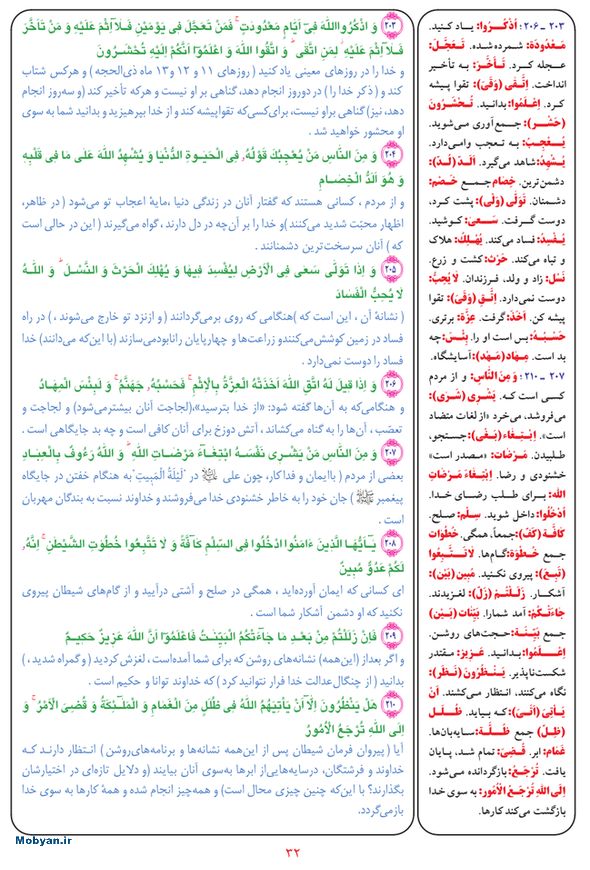 ۲۰۳ ـ ۲۰۶ : اُذْکُرُوا: یاد کنید.
مَعْدُودَة: شمرده شده. تَعَجَّلَ:
عجله کرد. تَأَخَّرَ: به تأخیر
انداخت. اِتَّقی (وَقَیَ): تقوا پیشه
کرد. اِعْلَمُوا: بدانید. تُحْشَرُونَ
(حَشْر): جمع‌آوری می‌شوید.
یُعْجِبُ: به تعجب وامی‌دارد.
یُشْهِدُ: شاهد می‌گیرد. اَلَدّ (لَدّ):
دشمن‌ترین. خِصام جمـع خَصْم:
دشمنان. تَوَلَّی (وَلَی): پشت کرد،
دوست گـرفت. سَـعی: کوشید.
یُفْسِدَ: فساد می‌کند. یُهْلِكَ: هلاک
و تباه می‌کند. حَرْث: کشت و زرع.
نَسْل: زاد و ولد، فرزندان. لا یُحِبُّ:
دوست نمی‌دارد. اِتَّقِ (وَقَیَ): تقوا
پیشه کن. اَخَذَ: گرفت. عِزَّة: برتری.
حَسْبُـهُ: بس است او را. بِئْسَ: چه
بد است. مِهاد (مَهْد): آسایشگاه.
۲۰۷ ـ ۲۱۰ : وَ مِنَ النّاسِ: و از مردم
کسی است که. یَشْری (شَری):
می‌فروشد، می‌خرد «از لغات متضاد
است». اِبْتِغاء (بَغَی): جستجو،
طلبیدن. مَرْضات: «مصدر است»
خشنودی و رضا. اِبْتِغاءَ مَرْضاتِ
الله: بـرای طلـب رضـای خـدا.
اُدْخُلُوا: داخل شوید. سِلْم: صلح.
کافَّـة (کَفّ): جمعاً، همگی. خُطُوات
جمع خُطْوَة: گـام‌ها. لا تَـتَّـبِعُوا
(تَبِعَ): پیروی نکنید. مُبین (بَیْن):
آشکار. زَلَـلْـتُم (زَلّ): لغزیدند.
جاءَتْکُمْ: آمد شمارا. بَیِّنات (بَیْن)
جمع بَیِّنَـة: حجـت‌های روشـن.
اِعْلَمُوا: بـدانیـد. عَزیز: مقتدر
شکست‌ناپذیر. یَنْظُرُونَ (نَظَر):
نگاه می‌کنند، انتظار می‌کشند. اَنْ
یَأتِیَ (اَتَیَ): کـه بیایـد. ظُلَـل
(ظِلّ) جمع ظُلَّـة: سایه‌بان‌ها.
غَمام: ابر. قُضِیَ: تمام شد، پایان
یافت. تُرْجَعُ: بازگردانده می‌شود.
اِلَی اللهِ تُرْجَعُ الْاُمُور: به سوی خدا
بازگشت می‌کند کارها.
۲۰۳ وَ اذْکُرُوا اللهَ فی اَیّامٍ مَعْدُودتٍ ۚ فَمَنْ تَعَجَّلَ فی یَوْمَیْنِ فَـلآ اِثْمَ عَلَیْهِ وَ مَنْ تَاَخَّرَ
فَـلآ اِثْمَ عَلَیْهِ ۙ لِمَنِ اتَّقی ۗ وَ اتَّقُوا اللهَ وَ اعْلَمُوٓا اَنَّکُمْ اِلَیْهِ تُحْشَرُونَ
و خدا را در روزهای معینی یاد کنید ( روزهای ۱۱ و ۱۲ و ۱۳ ماه ذی‌الحجه ) و هرکس شتاب
کند و ( ذکر خدا را ) در دوروز انجام دهد، گناهی بر او نیست و هرکه تأخیر کند (و سه‌روز انجام
دهد، نیز) گناهی براو نیست، برای‌کسی‌که تقواپیشه کند و از خدا بپرهیزید و بدانید شما به سوی
او محشور خواهید شد .
۲۰۴ وَ مِنَ النّاسِ مَنْ یُعْجِبُكَ قَوْلُهُۥ فِی الْحَیوةِ الدُّنْیا وَ یُشْهِدُ اللهَ عَلی ما فی قَلْبِهِ
وَ هُوَ اَلَدُّ الْخِصـامِ
و از مردم ، کسانی هستند که گفتار آنان در زندگی دنیا ،مایهٔ اعجاب تو می‌شود ( در ظاهر،
اظهار محبّت شدید می‌کنند )و خدا را بر آن‌چه در دل دارند ، گواه می‌گیرند ( این در حالی است
که ) آنان سرسخت‌ترین دشمنانند .
۲۰۵ وَ اِذا تَوَلّی سَعی فِی الْاَرْضِ لِیُفْسِدَ فیها وَ یُهْلِكَ الْحَرْثَ وَ النَّسْلَ ۗ وَ اللهُ
لا یُحِبُّ الْفَسادَ
( نشانهٔ آن ، این است که )هنگامی‌که روی برمی‌گردانند ( و ازنزد تو خارج می‌شوند ، ) در راه
فساد در زمین کوشش‌می‌کنندو زراعت‌ها و چهارپایان رانابودمی‌سازند (با این‌که می‌دانند) خدا
فساد را دوست نمی‌دارد .
۲۰۶ وَ اِذا قیلَ لَهُ اتَّقِ اللهَ اَخَذَتْهُ الْعِزَّةُ بِالْاِثْمِ ۚ فَحَسْبُهُۥ جَهَنَّمُ ۚ وَ لَبِئْسَ الْمِهـادُ
و هنگامی‌که به آن‌ها گفته شود: «از خدا بترسید»،(لجاجت آنان بیشترمی‌شود) و لجاجت و
تعصّب ، آن‌ها را به گناه می‌کشاند ، آتش دوزخ برای آنان کافی است و چه بد جایگاهی است .
۲۰۷ وَ مِنَ النّاسِ مَنْ یَشْـری نَفْسَـهُ ابْتِغـآءَ مَرْضـاتِ اللهِ ۗ وَ اللهُ رَءُوفٌ بِالْعِبـادِ
بعضی از مردم ( باایمان و فداکار، چون علی در "لَیْلَةُ الْمَبیتِ" به هنگام خفتن در جایگاه
پیغمبر ) جان خود را به خاطر خشنودی خدا می‌فروشند و خداوند نسبت به بندگان مهربان
است .
۲۰۸ یـآ اَیُّهَا الَّذینَ ءَامَنُوا ادْخُلُوا فِی السِّلْمِ کآفَّةً وَ لا تَتَّبِعُوا خُطُوتِ الشَّیْطنِ ۚ اِنَّهُۥ
لَکُمْ عَدُوٌّ مُبینٌ
ای کسانی که ایمان آورده‌اید ، همگی در صلح و آشتی درآیید و از گام‌های شیطان پیروی
نکنید که او دشمن آشکار شما است .
۲۰۹ فَاِنْ زَلَلْتُمْ مِنْ بَعْدِ ما جآءَتْکُمُ الْبَیِّنتُ فَاعْلَمُوٓا اَنَّ اللهَ عَزیزٌ حَکیـمٌ
و اگر بعداز (این‌همه) نشانه‌های روشن که برای شما آمده‌است ، لغزش کردید ( و گمراه شدید ، )
بدانید ( از چنگال‌عدالت خدا فرار نتوانید کرد ) که خداوند توانا و حکیم است .
۲۱۰ هَلْ یَنْظُرُونَ اِلّآ اَنْ یَأتِیَهُمُ اللهُ فی ظُلَلٍ مِنَ الْغَمامِ وَ الْمَلـٓئِکَةُ وَ قُضِیَ الْاَمْرُ ۚ وَ
اِلَی اللهِ تُرْجَعُ الْاُمُورُ
آیا ( پیروان فرمان شیطان پس از این‌همه نشانه‌ها و برنامه‌های‌روشن ) انتظار دارنـد کـه
خداوند و فرشتگان، درسایه‌هایی‌از ابرها به‌سوی آنان بیایند (و دلایل تازه‌ای در اختیارشان
بگذارند؟ با این‌که چنین چیزی محال است) و همه‌چیز انجام شده و همهٔ کارها به سوی خدا
بازمی‌گردد.
Mobyan.ir
۳۲